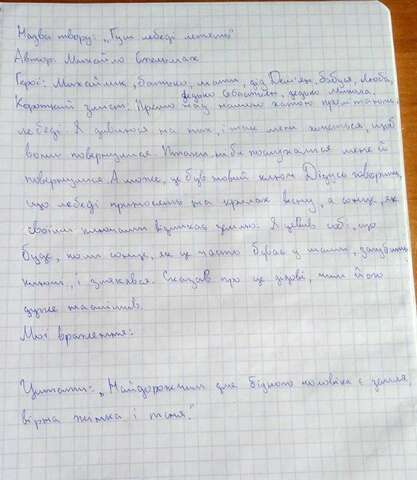 Назва твору: „Гуси-лебеді летять"
Автор: Михайло Стельмах
Герої: Михайлик, батько, мати, дід Дем'ян, бабуся, Люба,
дядько Себастіян, дядько Микола.
Короткий зміст: Прямо над нашою хатою пролітають
лебеді. Я дивлюся на них, і так мені хочеться, щоб
вони повернулися. Птахи ніби послухалися мене й
повернулися. А може, це був новий ключ. Дідусь говорить,
що лебеді приносять на крилах весну, а сонце, як
своїми ключами відмикає землю. Я уявив собі, що
буде, коли сонце, як це часто буває у мами, загубить
ключі, і злякався. Сказав про це дідові, чим його
дуже насмішив.
Мої враження:
Цитати: „Найдорожчим для бідного чоловіка є земля,
вірна жінка і пісня."